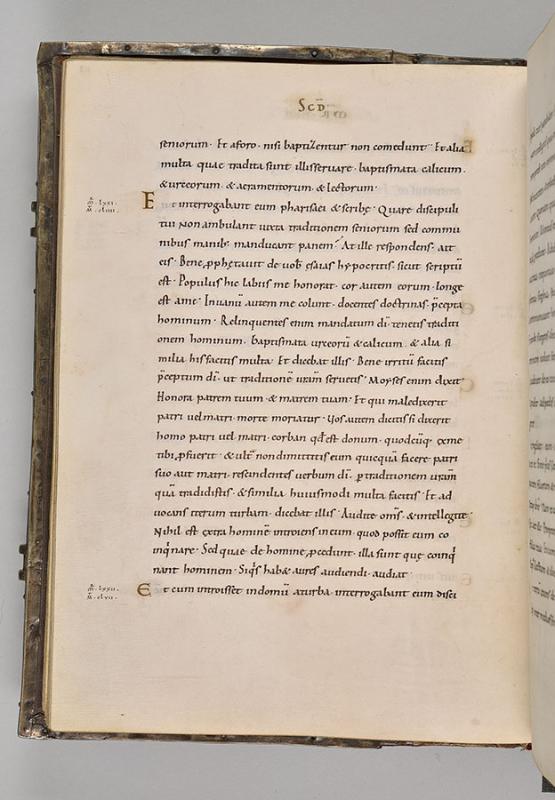 SCD
seniorum · Et aforo · nisi baptizentur non comedunt · Et alia
multa quae tradita sunt illis seruare · baptismata calicum ·
& urceorum · & aeramentorum · & lectorum ·
Et interrogabant eum pharisaei & scribę · Quare discipuli
tui non ambulant iuxta traditionem seniorum sed commu
nibus manib; manducant panem? At ille respondens · ait
eis · Bene, ꝓphetauit de uob esaias hypocritis · sicut scriptū
est · Populus hic labiis me honorat · cor autem eorum · longe
est ame · Inuanū autem me colunt · docentes doctrinas · p̄cepta
hominum · Relinquentes enim mandatum dī · tenetis traditi
onem hominum · baptismata urceorū & calicum · & alia si
milia his facitis multa · Et dicebat illis · Bene irritū facitis
p̄ceptum dī · ut traditionē urām seruetis · Moyses enim dixit ·
Honora patrem tuum · & matrem tuam · Et qui maledixerit
patri uel matri · morte moriatur · Vos autem dicitis si dixerit
homo patri uel matri · corban qđ est donum · quodcūq; exme
tibi ꝓfuerit · & ultͣ non dimittitis eum quicquā facere patri
suo aut matri · rescindentes uerbum dī · ꝑ traditionem urām
quā tradidistis · & similia huiusmodi multa facitis · Et ad
uocans iterum turbam · dicebat illis · Audite om̄s · & intellegite ·
Nihil est extra hominē introiens in eum · quod possit eum co
inq̇nare · Sed quae de homine ꝓcedunt · illa sunt quę coinq̇
nant hominem · Siq̇s hab& aures audiendi · audiat ·
m̄ · lxxii ·
Et cum introisset indomū aturba · interrogabant eum disci